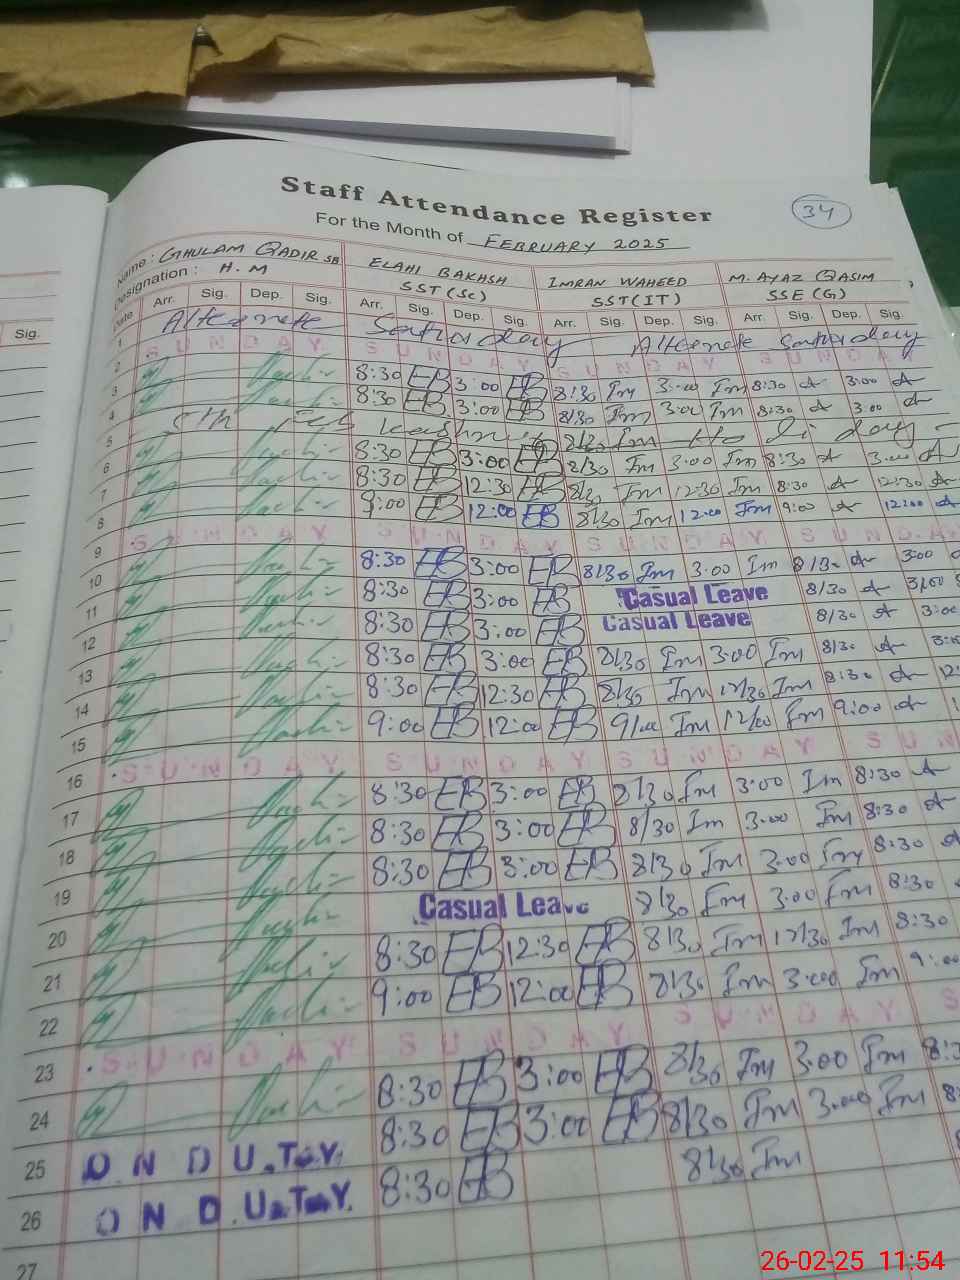 Staff Attendance Register
34
For the Month of FEBRUARY 2025
Name : GHULAM QADIR SB ELAHI BAKHSH IMRAN WAHEED M. AYAZ QASIM
Designation : H.M SST (Sc) SST (IT) SSE (G)
Sig. Date Arr. Sig. Dep. Sig. Arr. Sig. Dep. Sig. Arr. Sig. Dep. Sig. Arr. Sig. Dep. Sig.
1 Alternate Saturday Alternate Saturday
2 SUNDAY SUNDAY SUNDAY SUNDA
3 8:30 EB 3:00 EB 8/30 Im 3:00 Im 8:30 A 3:00 A
4 8:30 EB 3:00 EB 8/30 Im 3:00 Im 8:30 A 3:00 A
5 5th Feb Kashmir 8/30 Im Holi day
6 8:30 EB 3:00 EB 8/30 Im 3:00 Im 8:30 A 3:00 A
7 8:30 EB 12:30 EB 8/30 Im 12:30 Im 8:30 A 12:30 A
8 9:00 EB 12:00 EB 8/30 Im 12:00 Im 9:00 A 12:00 A
9 SUNDAY SUNDAY SUNDAY SUNDAY
10 8:30 EB 3:00 EB 8/30 Im 3:00 Im 8/30 A 3:00
11 8:30 EB 3:00 EB Casual Leave 8/30 A 3/00
12 8:30 EB 3:00 EB Casual Leave 8/30 A 3:00
13 8:30 EB 3:00 EB 8/30 Im 3:00 Im 8/30 A
14 8:30 EB 12:30 EB 8/30 Im 12/30 Im 8:30 A 12:
15 9:00 EB 12:00 EB 9/00 Im 12/00 Im 9:00 A
16 SUNDAY SUNDAY SUNDAY SUN
17 8:30 EB 3:00 EB 8/30 Im 3:00 Im 8:30 A
18 8:30 EB 3:00 EB 8/30 Im 3:00 Im 8:30 A
19 8:30 EB 3:00 EB 8/30 Im 3:00 Im 8:30 A
20 Casual Leave 8/30 Im 3:00 Im 8:30
21 8:30 EB 12:30 EB 8/30 Im 12/30 Im 8:30
22 9:00 EB 12:00 EB 8/30 Im 3:00 Im 9:00
23 SUNDAY SUNDAY SUNDAY S
24 8:30 EB 3:00 EB 8/30 Im 3:00 Im 8:3
25 ON DUTY 8:30 EB 3:00 EB 8/30 Im 3:00 Im 8:
26 ON DUTY 8:30 EB 8/30 Im
27
26-02-25 11:54